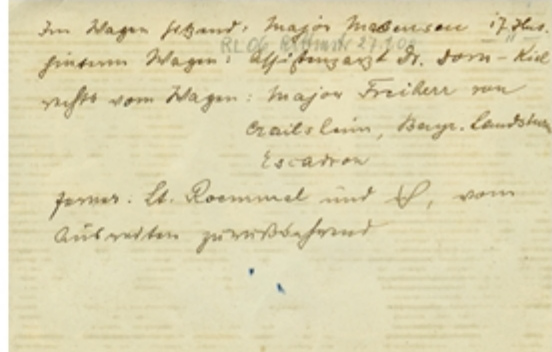 Im Wagen sitzend: Major Mackensen 17. Hus.
hinterm Wagen: Assistenzarzt Dr. Dorn - Kiel
rechts vom Wagen: Major Freiherr von
Crailsheim, Bayr. Landsturm
Escadron
ferner: Lt. Roemmel und, vom
Ausreiten zurückkehrend